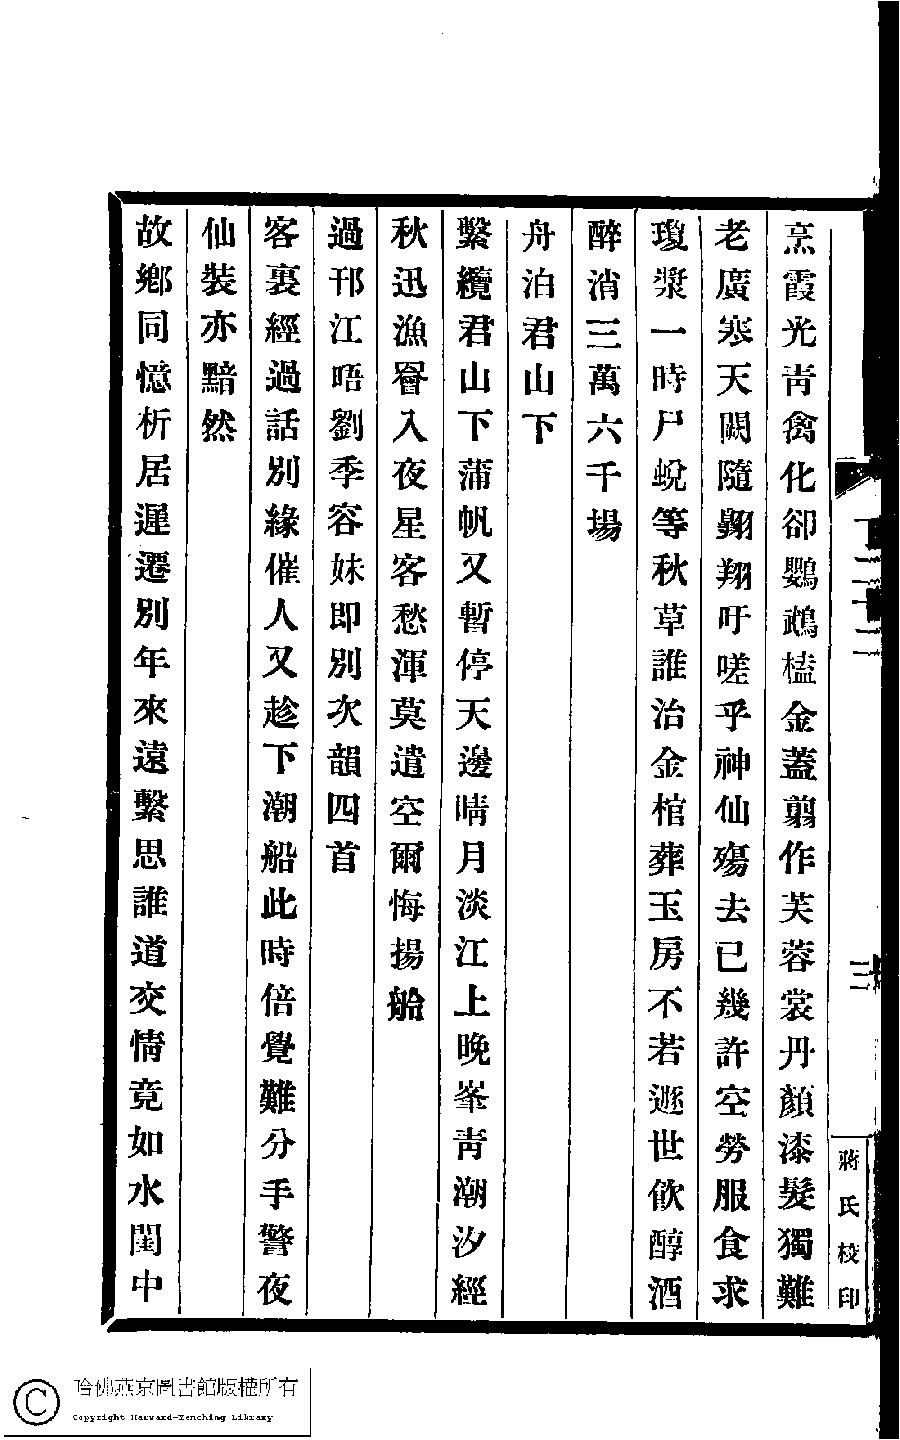 烹霞光靑禽化卻鸚鵡榼金蓋翦作芙蓉裳丹顏漆髮獨難
老廣寒天闕隨翺翔吁嗟乎神仙殤去已幾許空勞服食求
瓊漿一時尸蛻等秋草誰治金棺葬玉房不若遯世飮醇酒
醉消三萬六千場
舟泊君山下
繫纜君山下蒲帆又暫停天邊晴月淡江上晚峯靑潮汐經
秋迅漁罾入夜星客愁渾莫遣空爾悔揚舲
過邗江唔劉季容妹即別次韻四首
客裏經過話別緣催人又趁下潮船此時倍覺難分手警夜
仙裝亦黯然
故鄕同憶析居遲遷別年來遠繫思誰道交情竟如水閨中
三
蔣氏校印
哈佛燕京圖書館版權所有
Copyright Harvard-Yenching Library